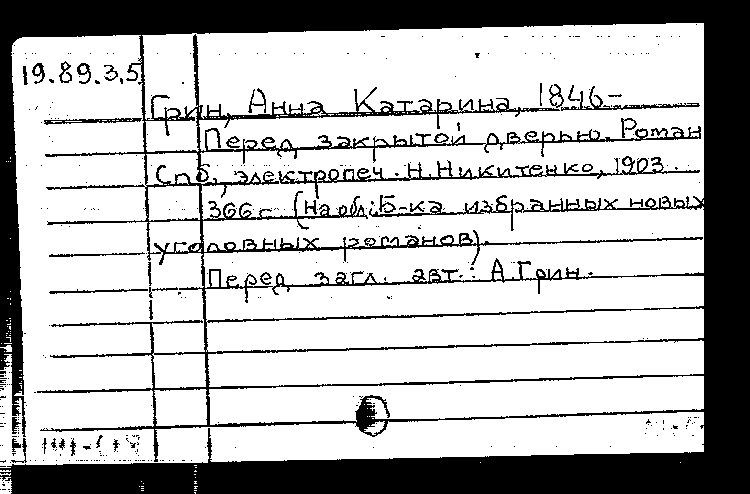 19.89.3.5
Грин, Анна Катарина, 1846-
Перед закрытой дверью. Роман
Спб., электропеч. Н. Никитенко, 1903.
366 с (На обл.: Б-ка избранных новых
уголовных романов).
Перед загл. авт.: А. Грин.